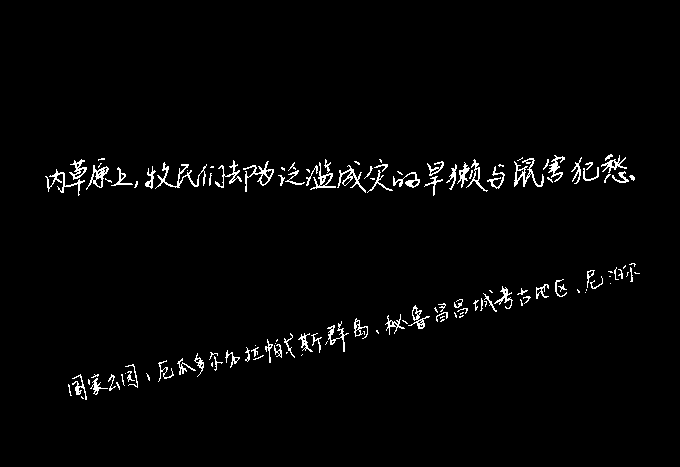 内草原上,牧民们却为泛滥成灾的旱獭与鼠害犯愁。
国家公园、厄瓜多尔加拉帕戈斯群岛、秘鲁昌昌城考古地区、尼泊尔